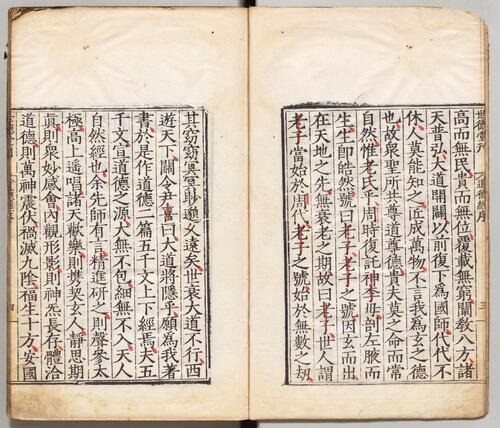 世德堂刊 道德經序 三
高而無民貴而無位覆載無窮闡敎八方諸
天普弘大道開闢以前復下爲國師代代不
休人莫能知之匠成萬物不言我爲玄之德
也故衆聖所共尊道尊德貴夫莫之命而常
自然惟老氏乎周時復託神李母剖左腋而
生生卽皓然號曰老子老子之號因玄而出
在天地之先無衰老之期故曰老子世人謂
老子當始於周代老子之號始於無數之劫
其窈窈冥眇邈久遠矣世衰大道不行西
遊天下關令尹喜曰大道將隱乎願爲我著
書於是作道德二篇五千文上下經焉夫五
千文宣道德之源大無不包細無不入天人
自然經也余先師有言精進研之則聲參太
極高上遥唱諸天歡樂則携契玄人靜思期
眞則衆妙感會內觀形影則神炁長存體洽
道德則萬神震伏禍滅九陰福生十方安國